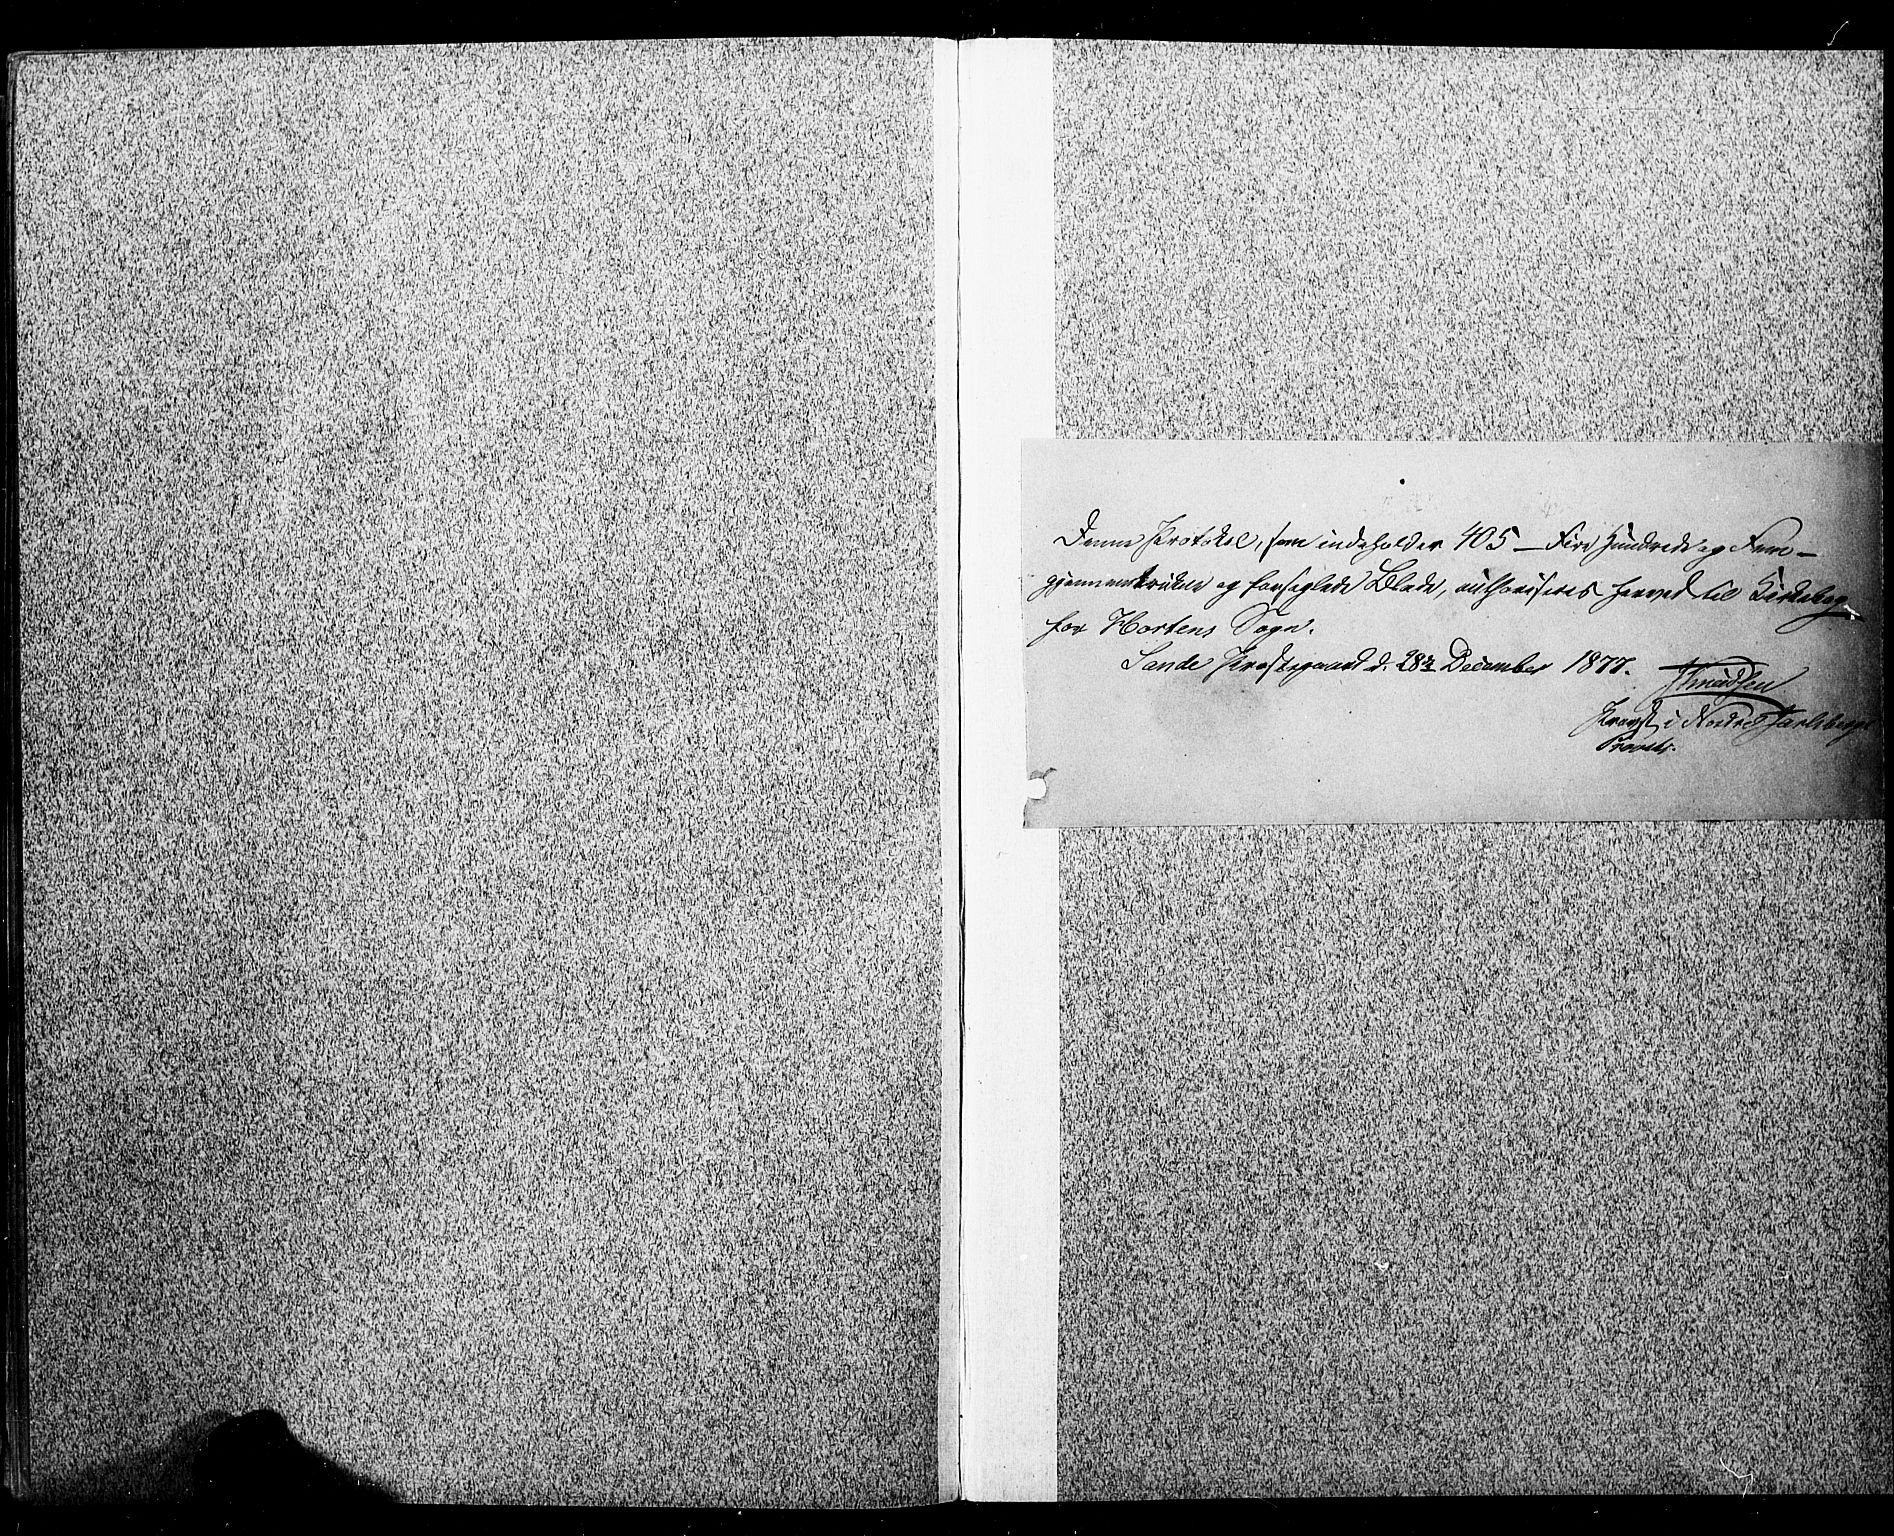 Denne Protokol, som indeholder 405 – Fire Hundrede og Fem –
gjennemtrukne og forseglede Blade, authoriseres herved til Kirkebog
for Hortens Sogn.
Sande Præstegaard d. 28de December 1877.
Knudsen
Provst i Nordre Jarlsbergs
Provsti.